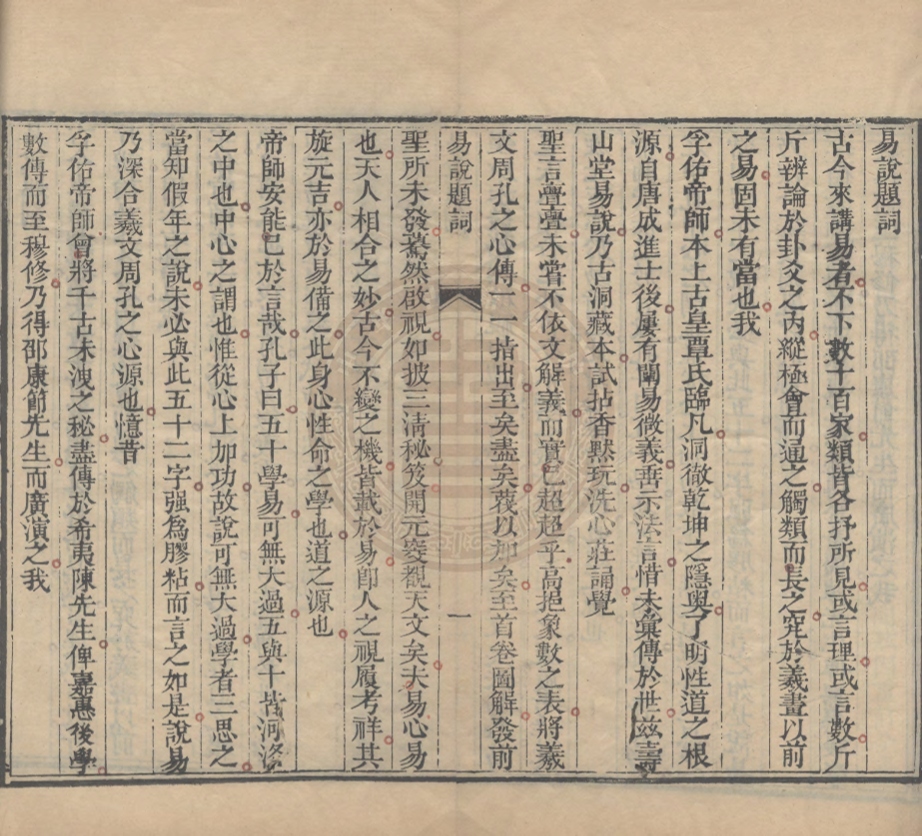 易說題詞
古今來講易者不下數十百家類皆各抒所見或言理或言數斤
斤辨論於卦爻之內縱極會而通之觸類而長之究於羲畫以前
之易固未有當也我
孚佑帝師本上古皇覃氏臨凡洞徹乾坤之隱奥了明性道之根
源自唐成進士後屢有闡易微義善示法言惜未彙傳於世茲壽
山堂易說乃古洞藏本試拈香默玩洗心莊誦覺
聖言亹亹未嘗不依文解義而實已超超乎高挹象數之表將羲
文周孔之心傳一一指出至矣盡矣蔑以加矣至首卷圖解發前
易說題詞
一
聖所未發驀然啟視如披三淸秘笈開元窔覩天文矣夫易心易
也天人相合之妙古今不變之機皆載於易卽人之視履考祥其
旋元吉亦於易備之此身心性命之學也道之源也
帝師安能已於言哉孔子曰五十學易可無大過五與十皆河洛
之中也中心之謂也惟從心上加功故說可無大過學者三思之
當知假年之說未必與此五十二字强為膠粘而言之如是說易
乃深合羲文周孔之心源也憶昔
孚佑帝師會將千古未洩之秘盡傳於希夷陳先生俾嘉惠後學
數傳而至穆修乃得邵康節先生而廣演之我